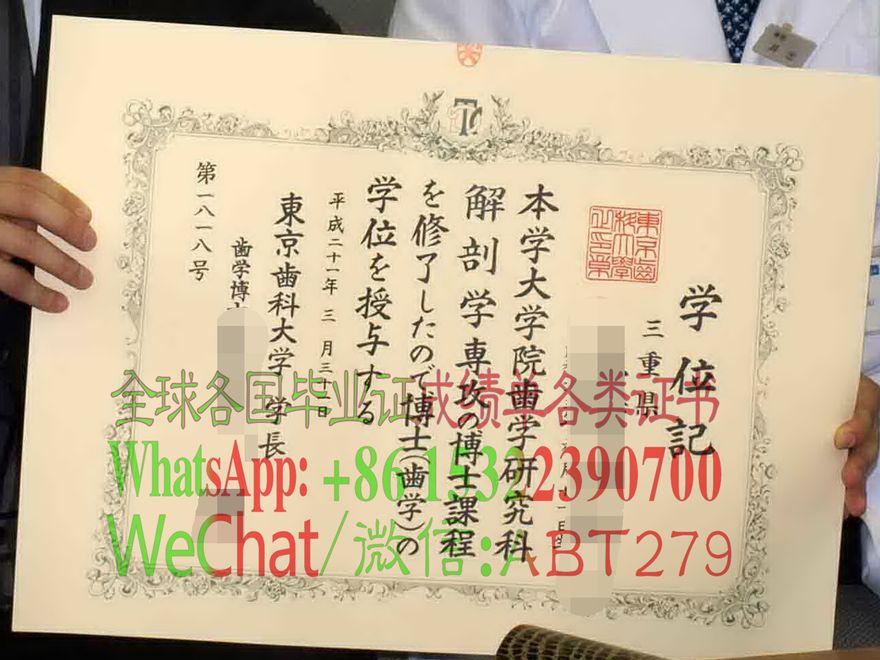 学位記
三重県
本学大学院歯学研究科
解剖学専攻の博士課程
を修了したので博士(歯学)の
学位を授与する
平成二十一年三月三十一日
東京歯科大学 学長
歯学博
第一八一八号
全球各国毕业证成绩单各类证书
WhatsApp: +86
WeChat/微信:ABT279